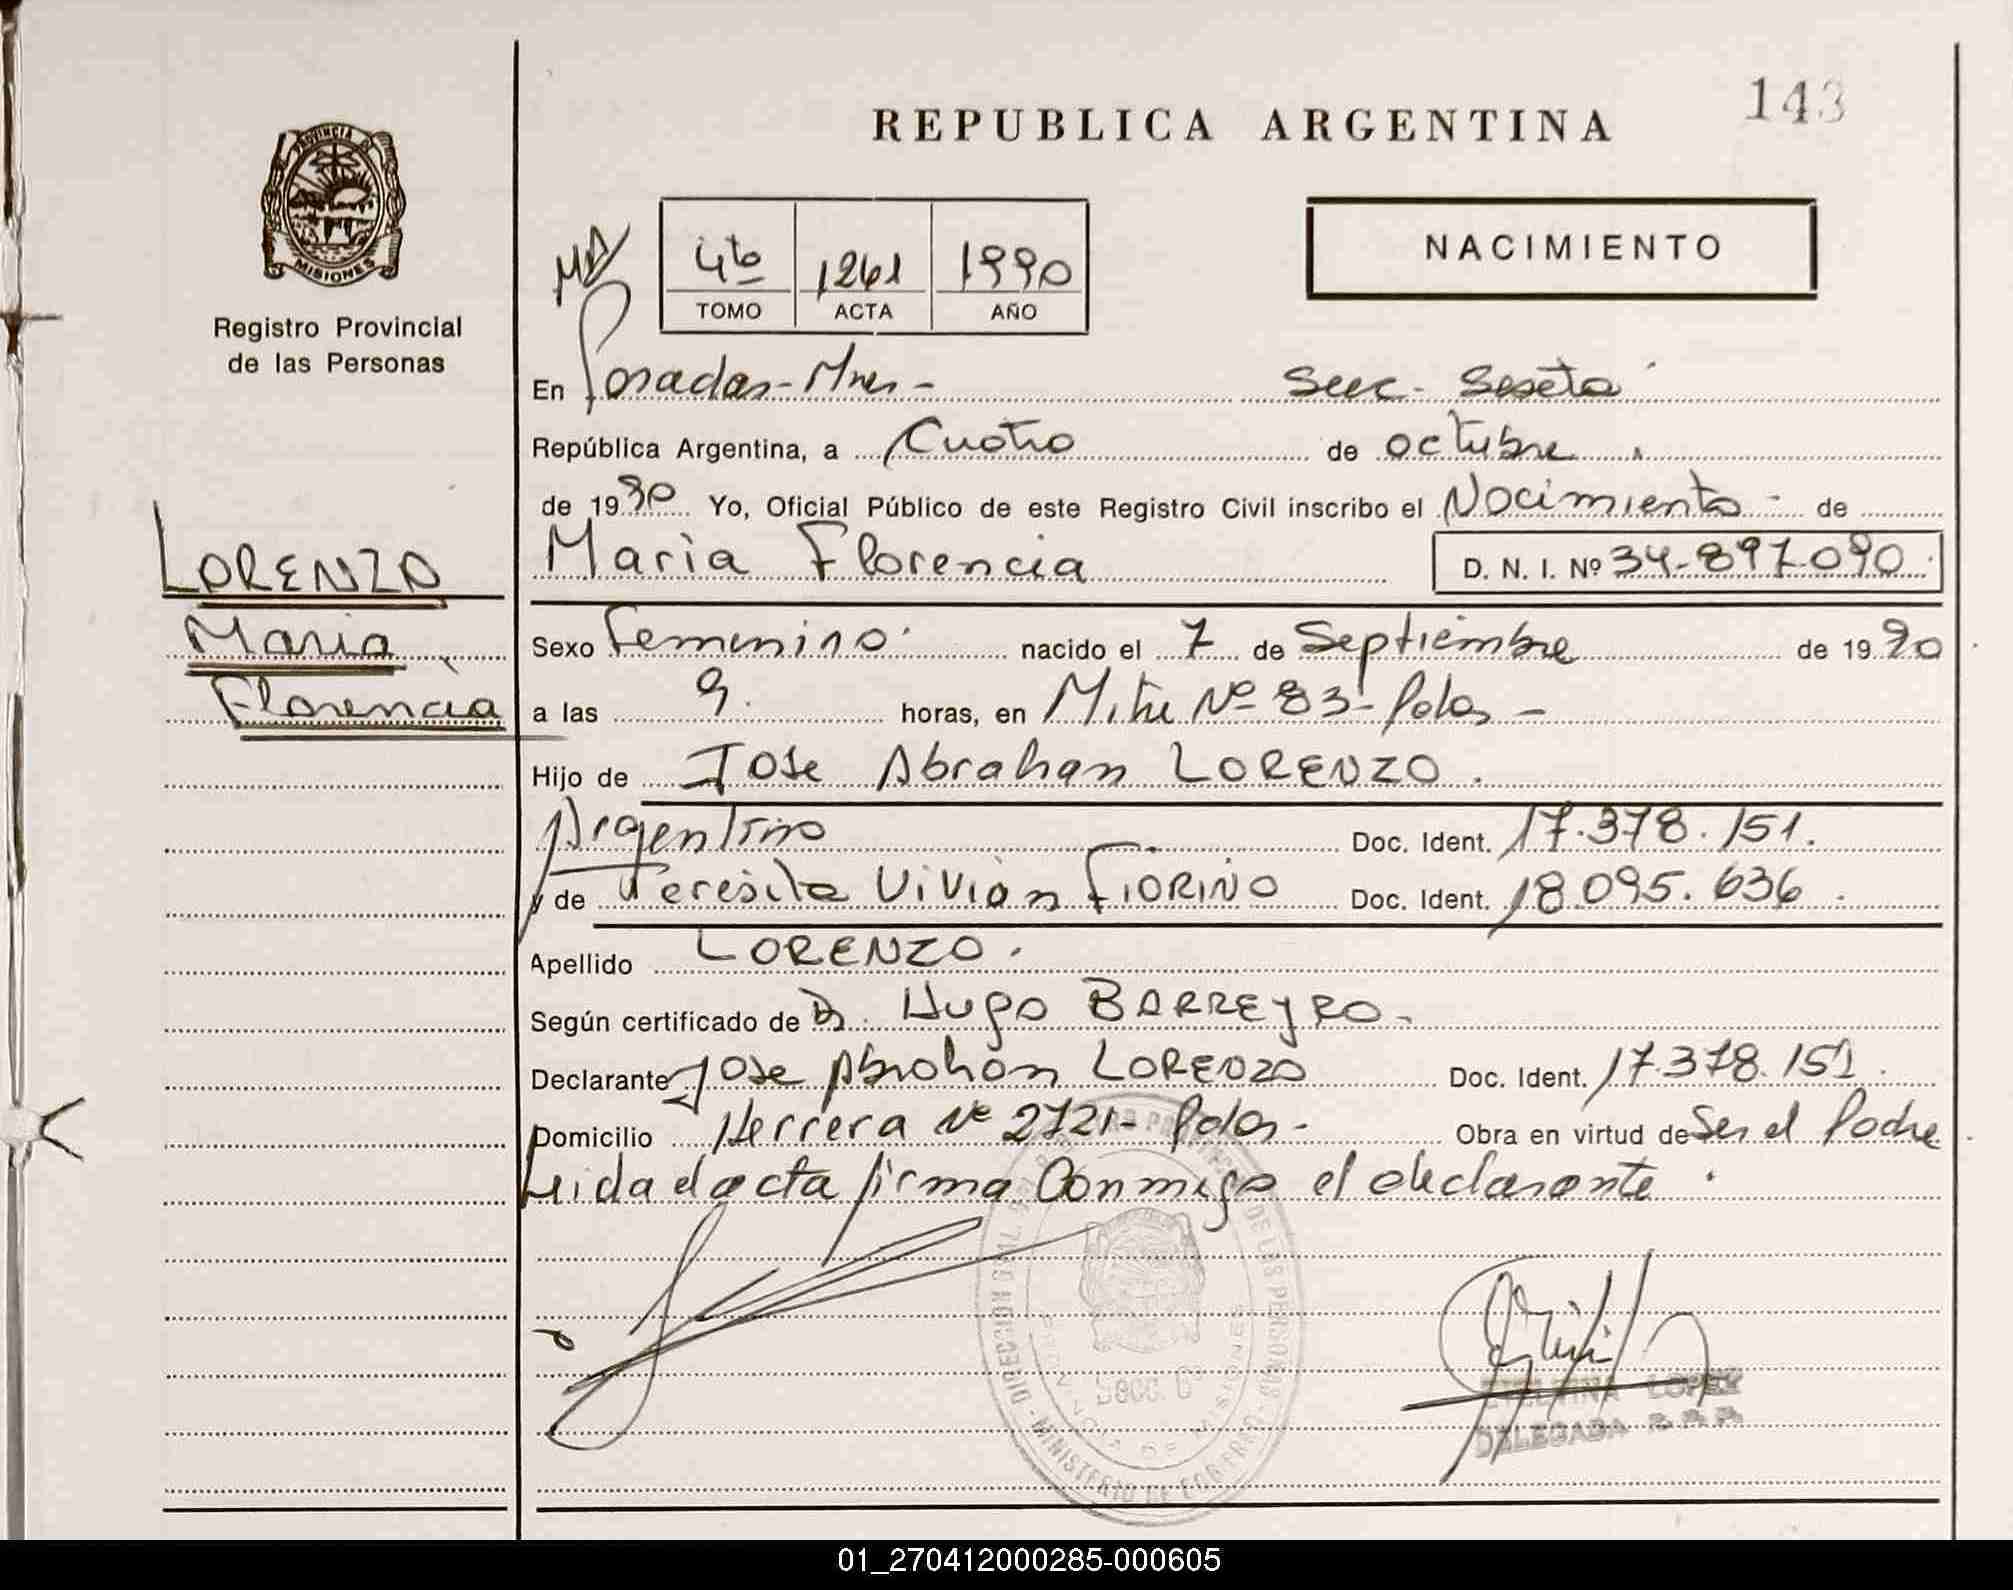 143
REPUBLICA ARGENTINA
PROVINCIA DE
MISIONES
Registro Provincial
de las Personas
4to 1261 1990
TOMO ACTA AÑO
NACIMIENTO
En Posadas - Mnes - Secc. Sexta
República Argentina, a Cuatro de octubre
de 1990 Yo, Oficial Público de este Registro Civil inscribo el Nacimiento - de
Maria Florencia D. N. I. Nº 34.897.090
LORENZO
Maria
Florencia
Sexo Femenino nacido el 7 de Septiembre de 1990
a las 9. horas, en Mitre Nº 83 - Pdas -
Hijo de Jose Abraham LORENZO.
Argentino Doc. Ident. 17.378.151.
y de Teresita Vivian FIORINO Doc. Ident. 18.095.636
Apellido LORENZO.
Según certificado de Dr. Hugo BARREYRO.
Declarante Jose Abraham LORENZO Doc. Ident. 17.378.151.
Domicilio Herrera Nº 2721 - Pdas - Obra en virtud de Ser el Padre
Leida el acta firma Conmigo el declarante.
DIRECCION GRAL. DEL REGISTRO PROVINCIAL DE LAS PERSONAS
PROVINCIA DE MISIONES
SECC. 6ª
MINISTERIO DE GOBIERNO
LOPEZ
DELEGADA R.P.P.
01_270412000285-000605